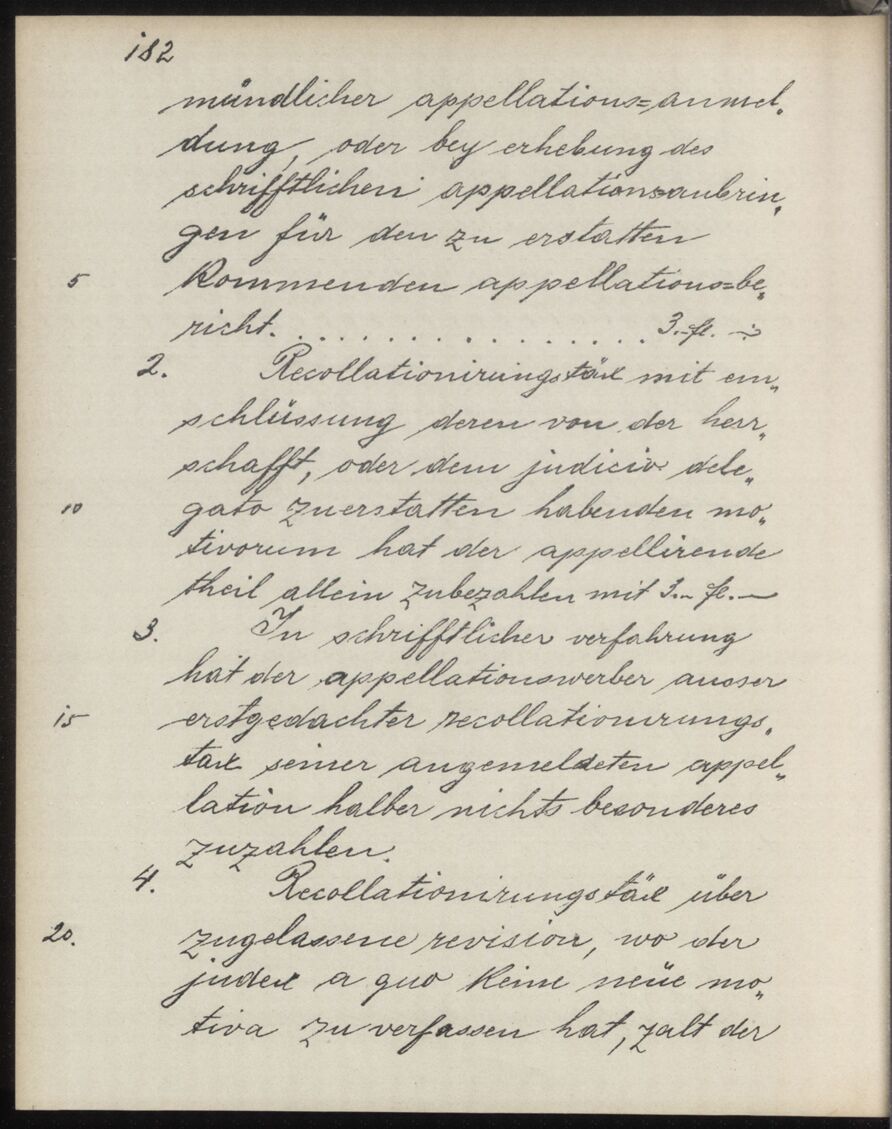 182
mündlicher appellations=anmel„
dung, oder bey erhebung des
schrifftlichen appellationsanbrin„
gen für den zu erstatten
5 kommenden appellations=be„
richt. . . . . . . . . . . . . . . . 3.-fl. -:
2. Recollationirungstäx mit ein„
schlüssung deren von der herr„
schafft, oder dem judicio dele„
10 gato zuerstatten habenden mo„
tivorum hat der appellirende
theil allein zubezahlen mit 3.- fl. -
3. In schrifftlicher verfahrung
hat der appellationswerber ausser
15 erstgedachter recollationirungs„
tax seiner angemeldeten appel„
lation halber nichts besonderes
zuzahlen.
4. Recollationirungstäx über
20. zugelassene revision, wo der
judex a quo keine neüe mo„
tiva zu verfassen hat, zalt der